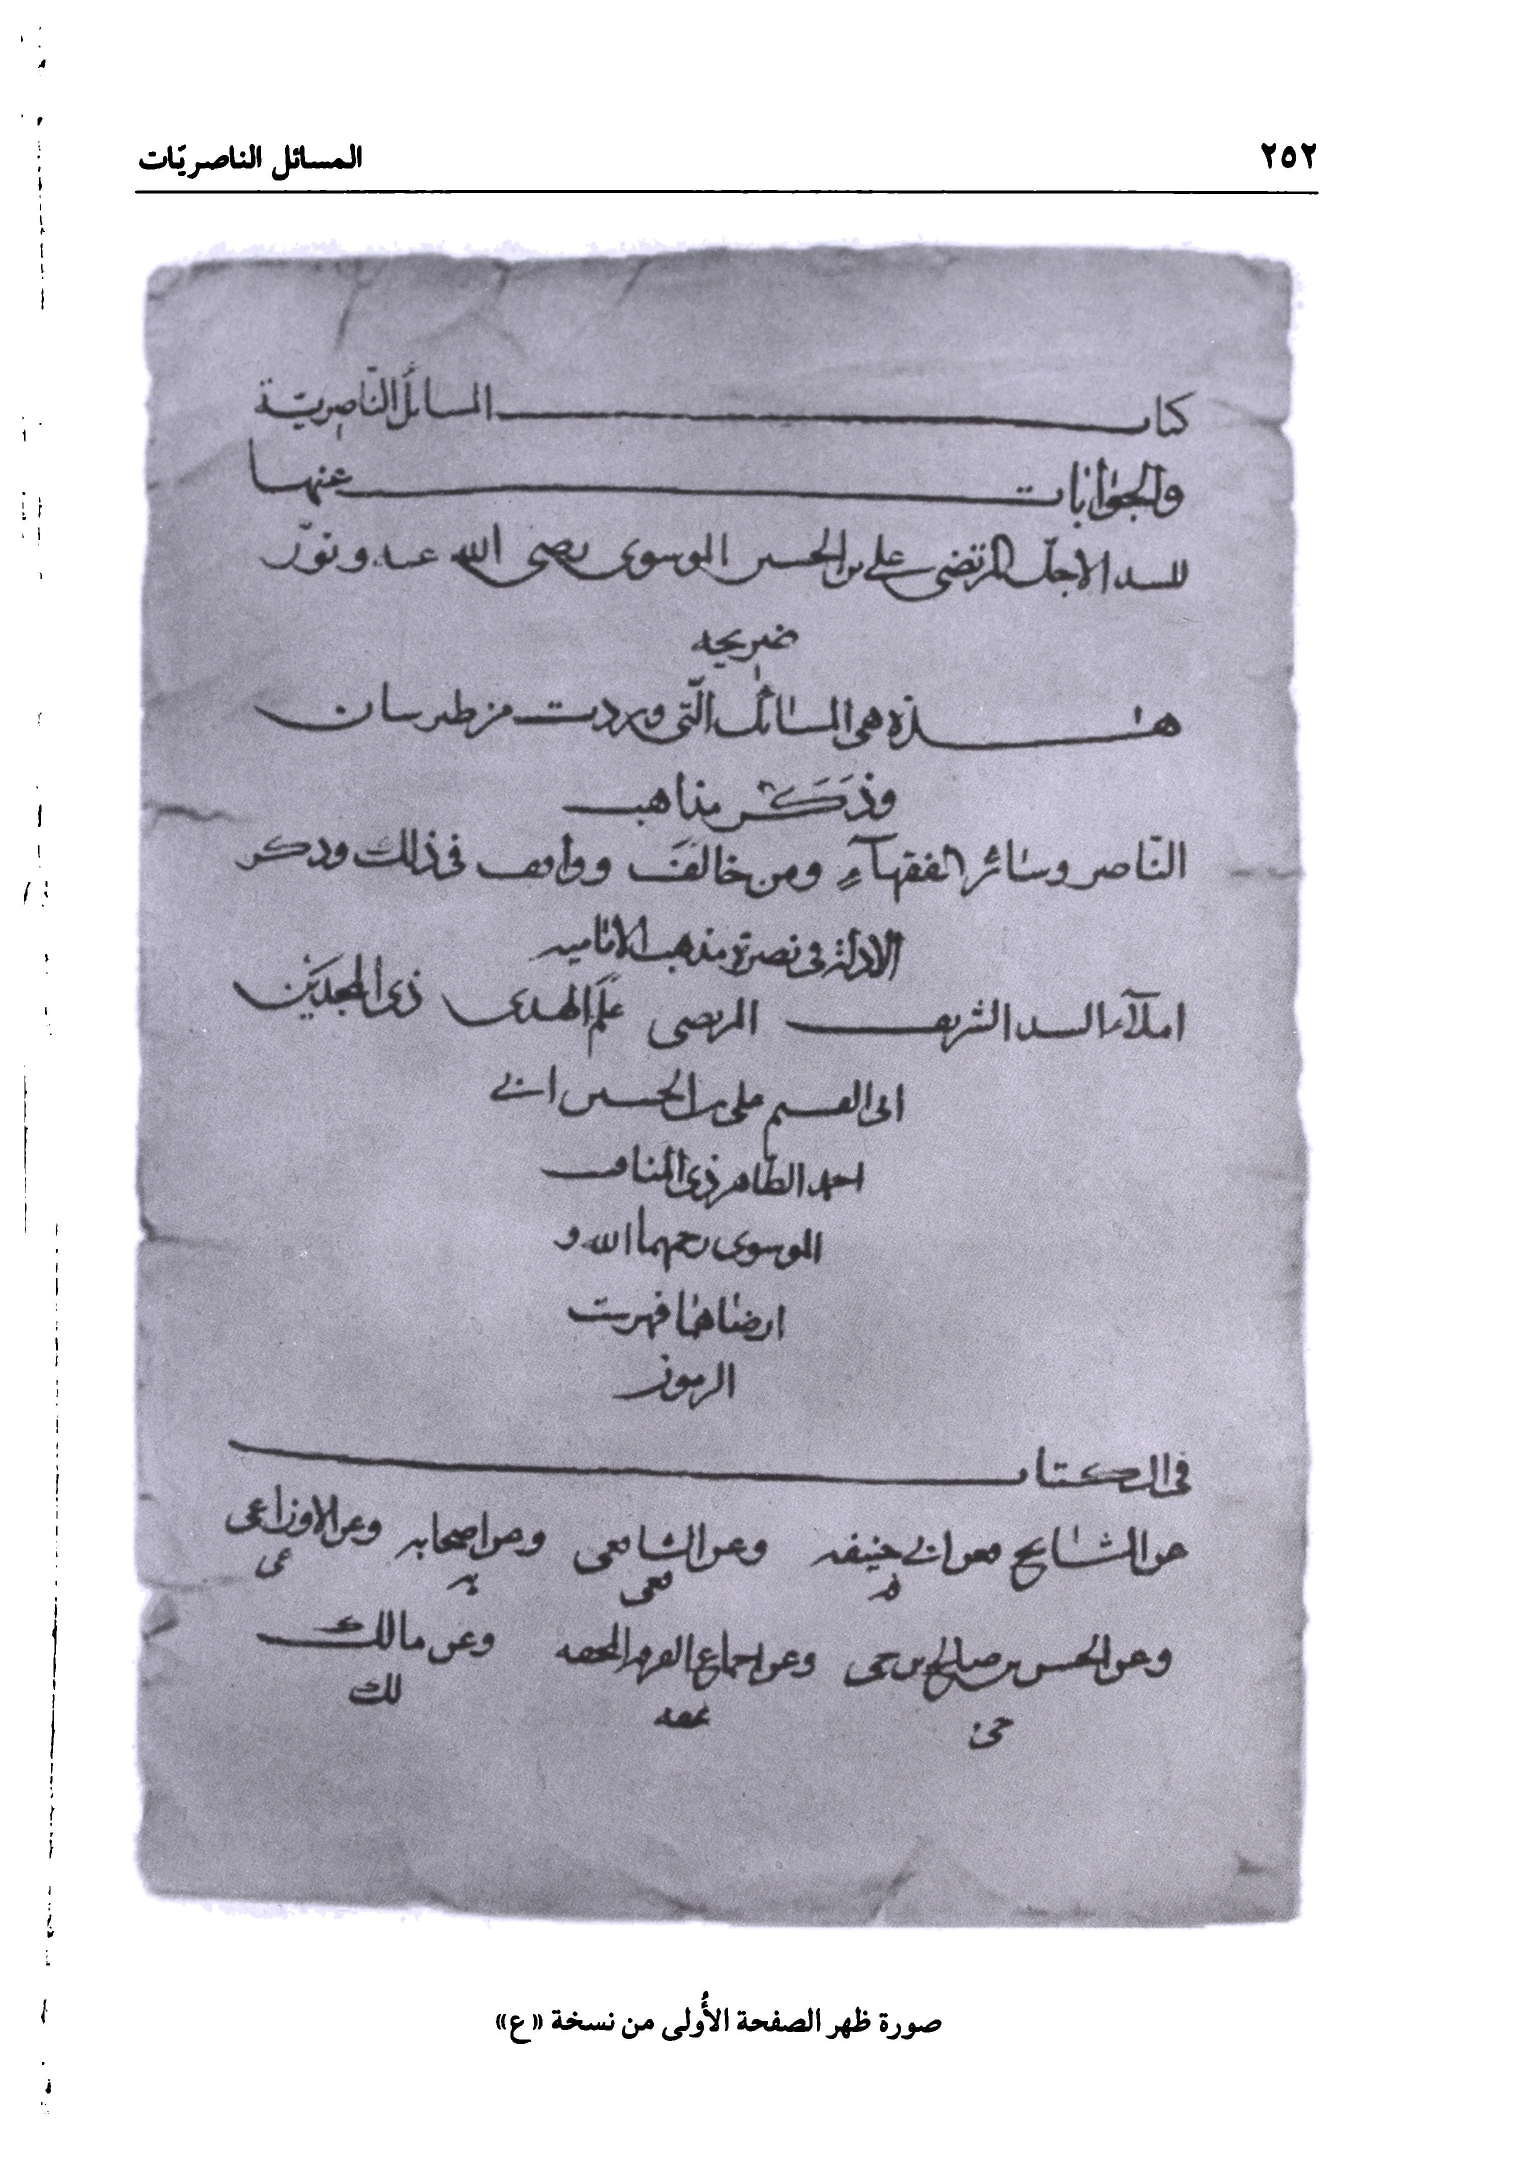 ٢٥٢ المسائل الناصريّات
كتاب المسائل النّاصريّة
والجوابات عنها
للسيد الاجلّ المرتضى علي بن الحسين الموسوى رضى الله عنه ونوّر
ضريحه
هذه هى المسائل الّتى وردت من طبرستان
وذَكَر مذاهب
النّاصر وسائر الفقهآءِ ومن خالفَ ووافق فى ذلك وذكر
الادلة فى نصرة مذهب الامامية
املآء السيد الشريف المرتضى عَلَم الهدى ذى المجدَيْن
ابى القسم على بن الحسين ابى
احمد الطاهر ذى المناقب
الموسوى رحمهما الله و
ارضاهما فهرست
الرموز
فى الكتاب
عن المشايخ فعن ابى حنيفه وعن الشافعى وعن اصحابه وعن الاوزاعى
فه فعى به عى
وعن الحسن بن صالح بن حى وعن اجماع الفرقه المحقه وعن مالك
حى محقه لك
صورة ظهر الصفحة الأُولى من نسخة «ع»